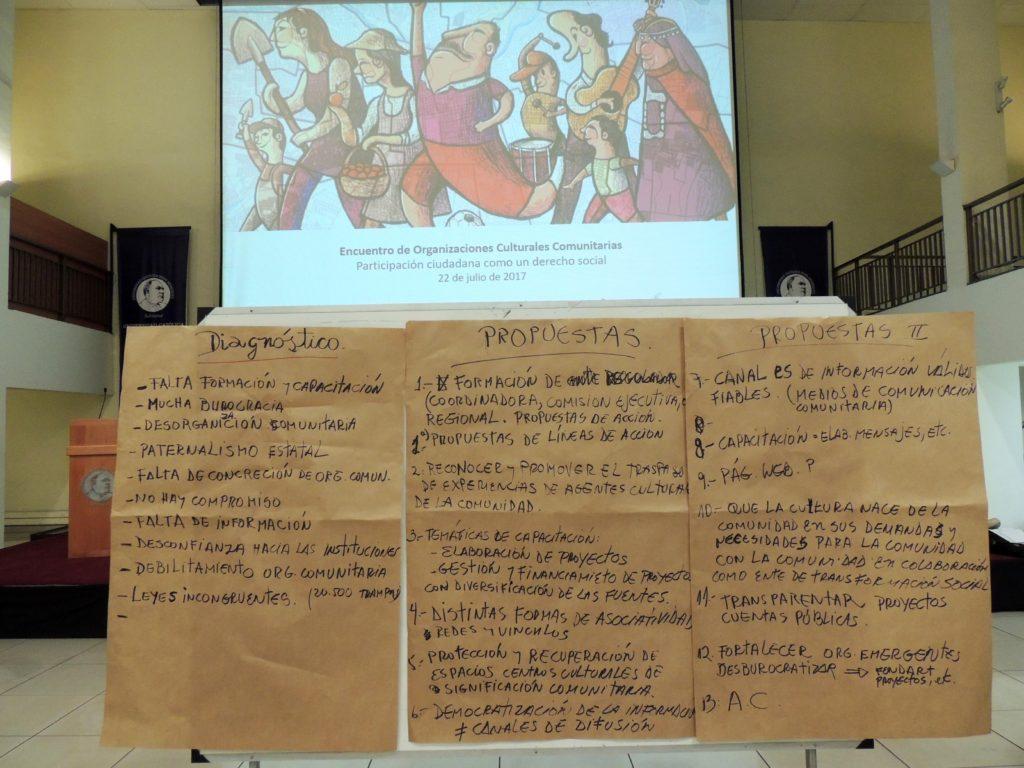 Encuentro de Organizaciones Culturales Comunitarias
Participación ciudadana como un derecho social
22 de julio de 2017
Diagnóstico.
- FALTA FORMACIÓN Y CAPACITACIÓN
- MUCHA BUROCRACIA
- DESORGANIZACIÓN COMUNITARIA
- PATERNALISMO ESTATAL
- FALTA DE CONCRECIÓN DE ORG. COMUN.
- NO HAY COMPROMISO
- FALTA DE INFORMACIÓN
- DESCONFIANZA HACIA LAS INSTITUCIONES
- DEBILITAMIENTO ORG. COMUNITARIA
- LEYES INCONGRUENTES. (20.500 TRAMPA)
-
PROPUESTAS.
1.- FORMACIÓN DE ENTE REGULADOR
(COORDINADORA, COMISION EJECUTIVA,
REGIONAL. PROPUESTAS DE ACCIÓN.
PROPUESTAS DE LÍNEAS DE ACCIÓN
2. RECONOCER Y PROMOVER EL TRASPASO
DE EXPERIENCIAS DE AGENTES CULTURA
DE LA COMUNIDAD.
3.- TEMÁTICAS DE CAPACITACIÓN:
- ELABORACIÓN DE PROYECTOS
- GESTIÓN Y FINANCIAMIETO DE PROYECTO
CON DIVERSIFICACIÓN DE LAS FUENTES.
4.- DISTINTAS FORMAS DE ASOCIATIVIDAD
REDES Y VINCULOS
5.- PROTECCIÓN Y RECUPERACIÓN DE
ESPACIOS CENTROS CULTURALES DE
SIGNIFICACIÓN COMUNITARIA.
6.- DEMOCRATIZACIÓN DE LA INFORMACIÓN
≠ CANALES DE DIFUSIÓN
PROPUESTAS II
7.- CANALES DE INFORMACIÓN VÁLIDOS
FIABLES. (MEDIOS DE COMUNICACIÓN
COMUNITARIA)
8.-
8.- CAPACITACIÓN = ELAB. MENSAJES, ETC.
9.- PÁG. WEB. ?
10.- QUE LA CULTURA NACE DE LA
COMUNIDAD EN SUS DEMANDAS Y
NECESIDADES PARA LA COMUNIDAD
CON LA COMUNIDAD EN COLABORACIÓN
COMO ENTE DE TRANSFORMACIÓN SOCIAL
11.- TRANSPARENTAR PROYECTOS
CUENTAS PÚBLICAS.
12. FORTALECER ORG. EMERGENTES
DESBUROCRATIZAR ⇒ FONDART
PROYECTOS, etc.
13. A.C.